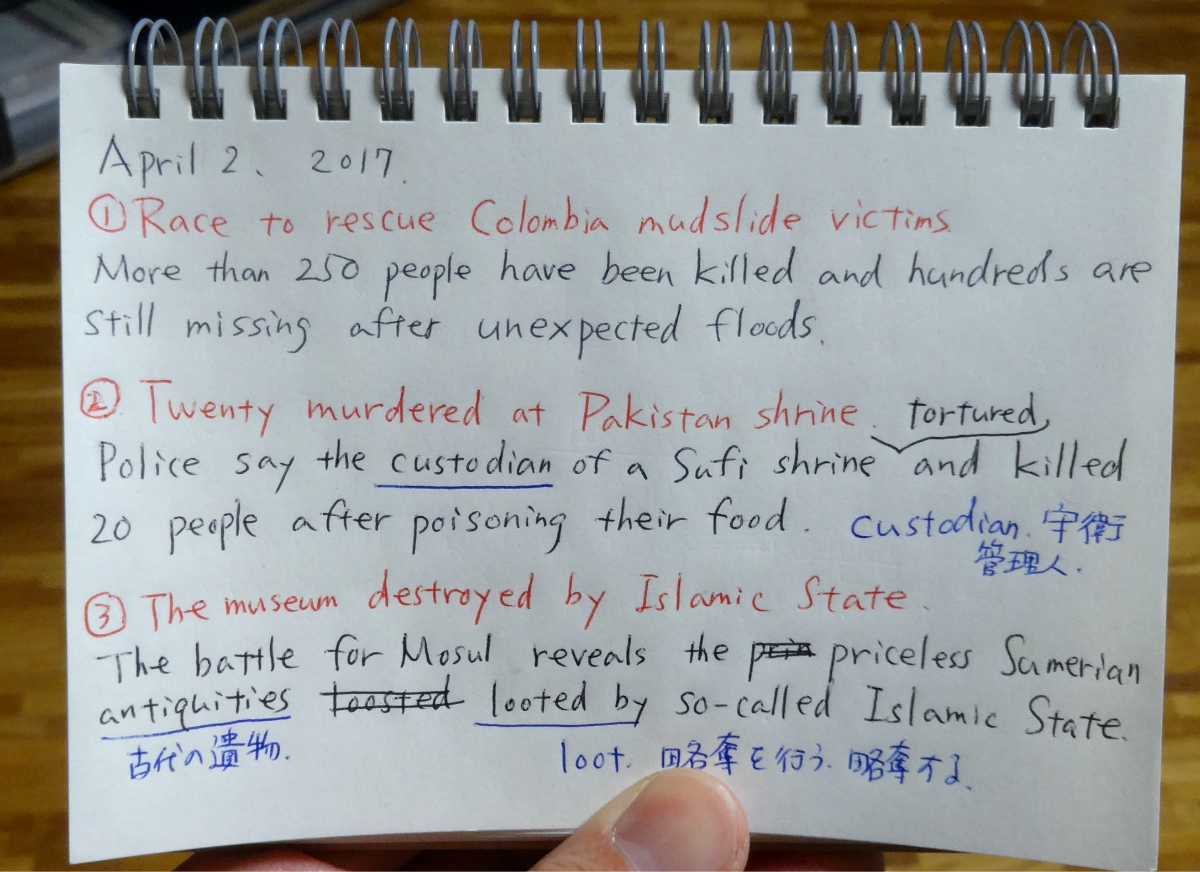 April 2、 2017.
① Race to rescue Colombia mudslide victims.
More than 250 people have been killed and hundreds are
still missing after unexpected floods.
② Twenty murdered at Pakistan shrine. tortured,
Police say the custodian of a Sufi shrine and killed
20 people after poisoning their food. custodian. 守衛
管理人.
③ The museum destroyed by Islamic State.
The battle for Mosul reveals the priceless Sumerian
antiquities toosted looted by so-called Islamic State.
古代の遺物. loot. 略奪を行う. 略奪する.